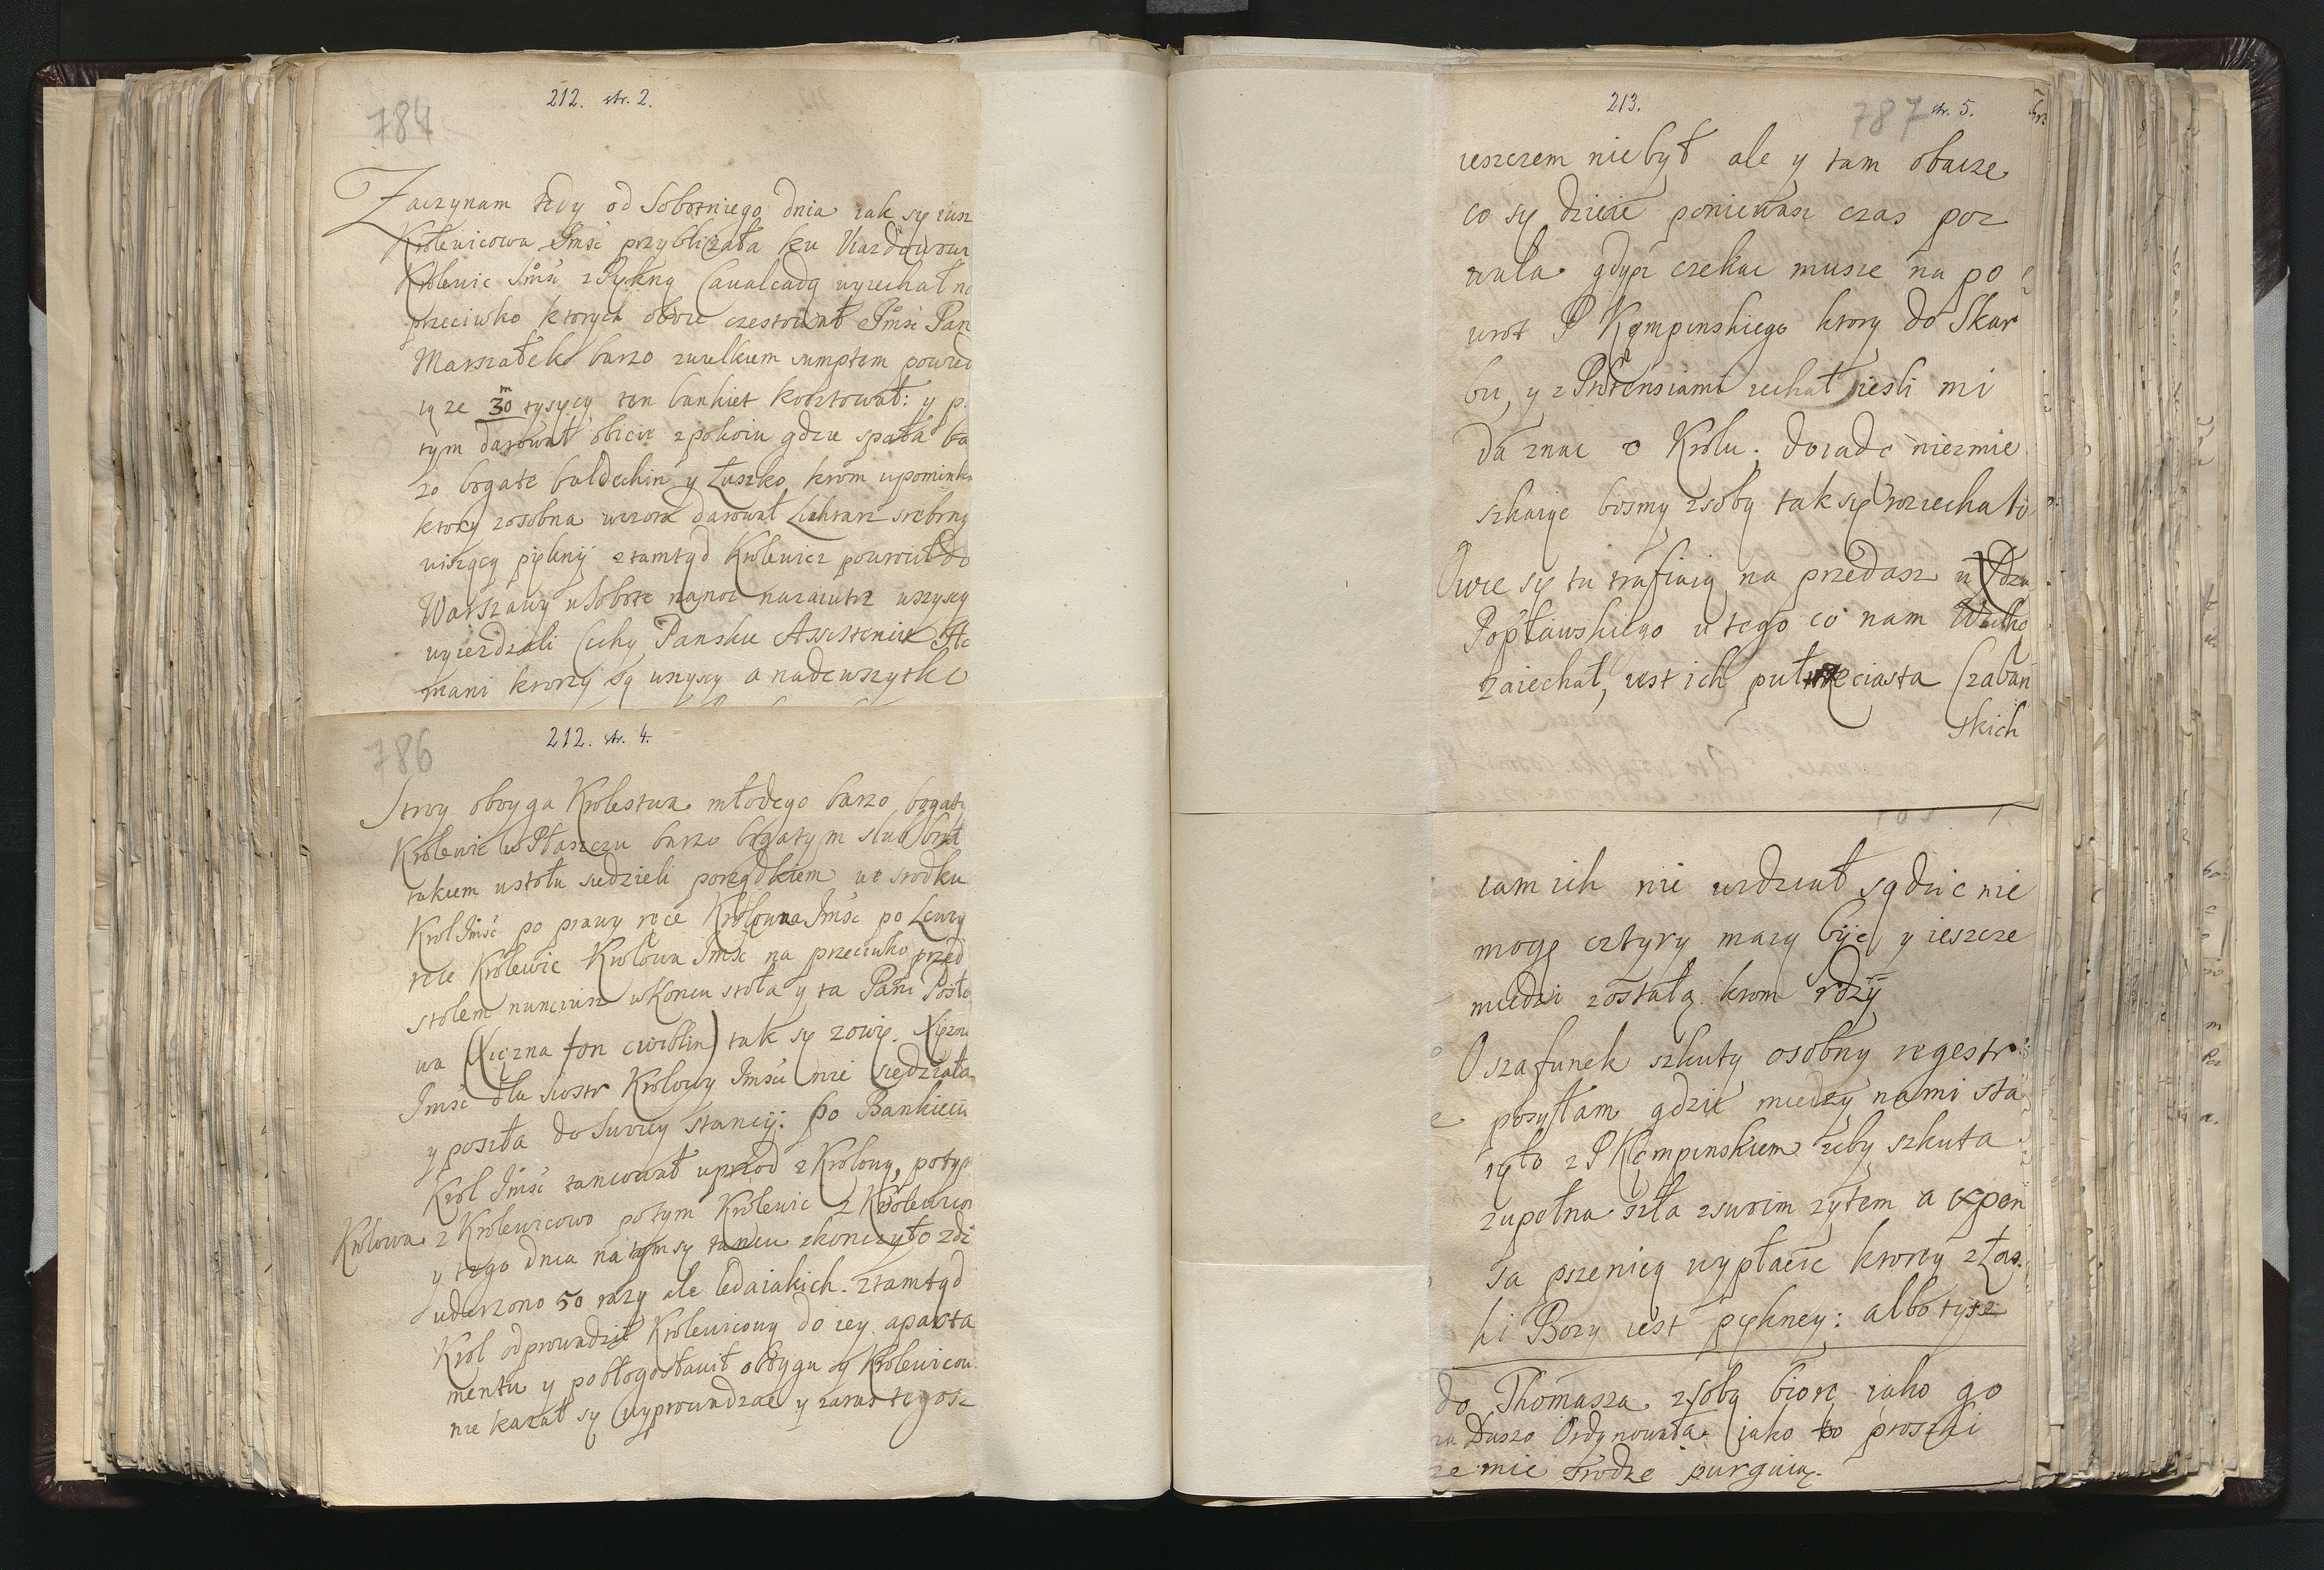 212. str. 2.
784
Zaczynam tedy od Sobotniego dnia iak sye iusz
Krolewicowa Jmsc przyblizała ku Uiazdowowi
Krolewic Jmsc z Piękną Caualcadą wyiechał na
przeciwko ktorych oboie czestował Jmsc Pan
Marszałek barzo zwielkiem sumptem powied
ią ze 30 m tysięcy ten bankiet kosztował: y p.
tym darował obicie z pokoiu gdzie spała ba
zo bogate baldechin y Łuszko, krom upominku
ktory zosobna wczora darował Lichtarz srebrny
wiszący piękny ztamtąd Krolewicz powrocił do
Warszawy w Sobote na noc nazaiutrz wszyscy
wyiezdzali Cuhy Panskie Assistenicie Het
mani ktorzy są wszyscy a nadewszytko
212. str. 4.
786
Stroy oboyga Krolestwa młodego barzo bogaty
Krolewic w Płaszczu barzo bogatym slub brał
takiem ustołu siedzieli porządkiem we srodku
Krol Jmsc po prawy ręce Krolowna Jmsc po Lewy
ręce Krolewic Krolowa Jmsc na przeciwko przed
stolem nunciusz w Koncu stoła y ta Pani Posło
wa (Xięzna fon cweblin) tak sye zowie. Xięzna
Jmsc dla siostr Krolowy Jmsci nie siedziała
y poszła do Swoiey stancij: po Bankiecie
Krol Jmsc tancował uprzod z Krolową, potym
Krolowa z Krolewicowo potym Krolewic z Krolewicow
y tego dnia na tym sy tancu skonczyło zdz
uderzono 50 razy ale ledaiakich. ztamtąd
Krol odprowadził Krolewicową do iey aparta
mentu y pobłogosławił oboygu y Krolewicow
nie kazał sy wyprowadzac y zaras tegosz
213.
787 str. 5.
ieszczem niebył ale y tam obacze
co sye dzieie poniewasz czas poz
wala gdysz czekac musze na po
wrot P Kęmpinskiego ktory do Skar
bu, y z Prętensiami iechał iesli mi
da znac o Krolu. doiade niezmie
szkaiąc bosmy zsobą tak sye roziechali
Owce sye tu trafiaią na przedasz u
Popławskiego u tego co nam
Zaiechał, iest ich puł ciasta Czaban
skich
iam ich nie widział sądzic nie
mogę cztyry maią byc y ieszcze
miedzi zostałą krom rdzÿ
O szafunek szkuty osobny regestr
posyłam gdzie miedzy nami sta
nęło z P Kępinskiem zeby szkuta
zupełna szła zswoim zytem a expen
sa pszenicą wypłacic ktorey z Łas
ki Bozy iest piękney: albo tysz
do Thomasza zsobą biorę iako go
Duszo Ordynowała, iako to proszki
ze mie srodze purguią.